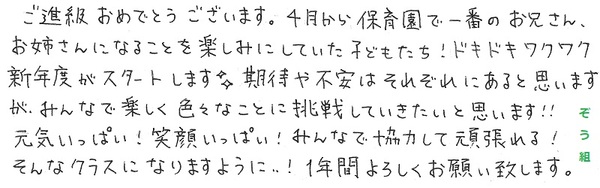 ご進級おめでとうございます。4月から保育園で一番のお兄さん、
お姉さんになることを楽しみにしていた子どもたち！ドキドキワクワク
新年度がスタートします✨期待や不安はそれぞれにあると思います
が、みんなで楽しく色々なことに挑戦していきたいと思います!!
元気いっぱい！笑顔いっぱい！みんなで協力して頑張れる！
そんなクラスになりますように..！1年間よろしくお願い致します。
ぞう組